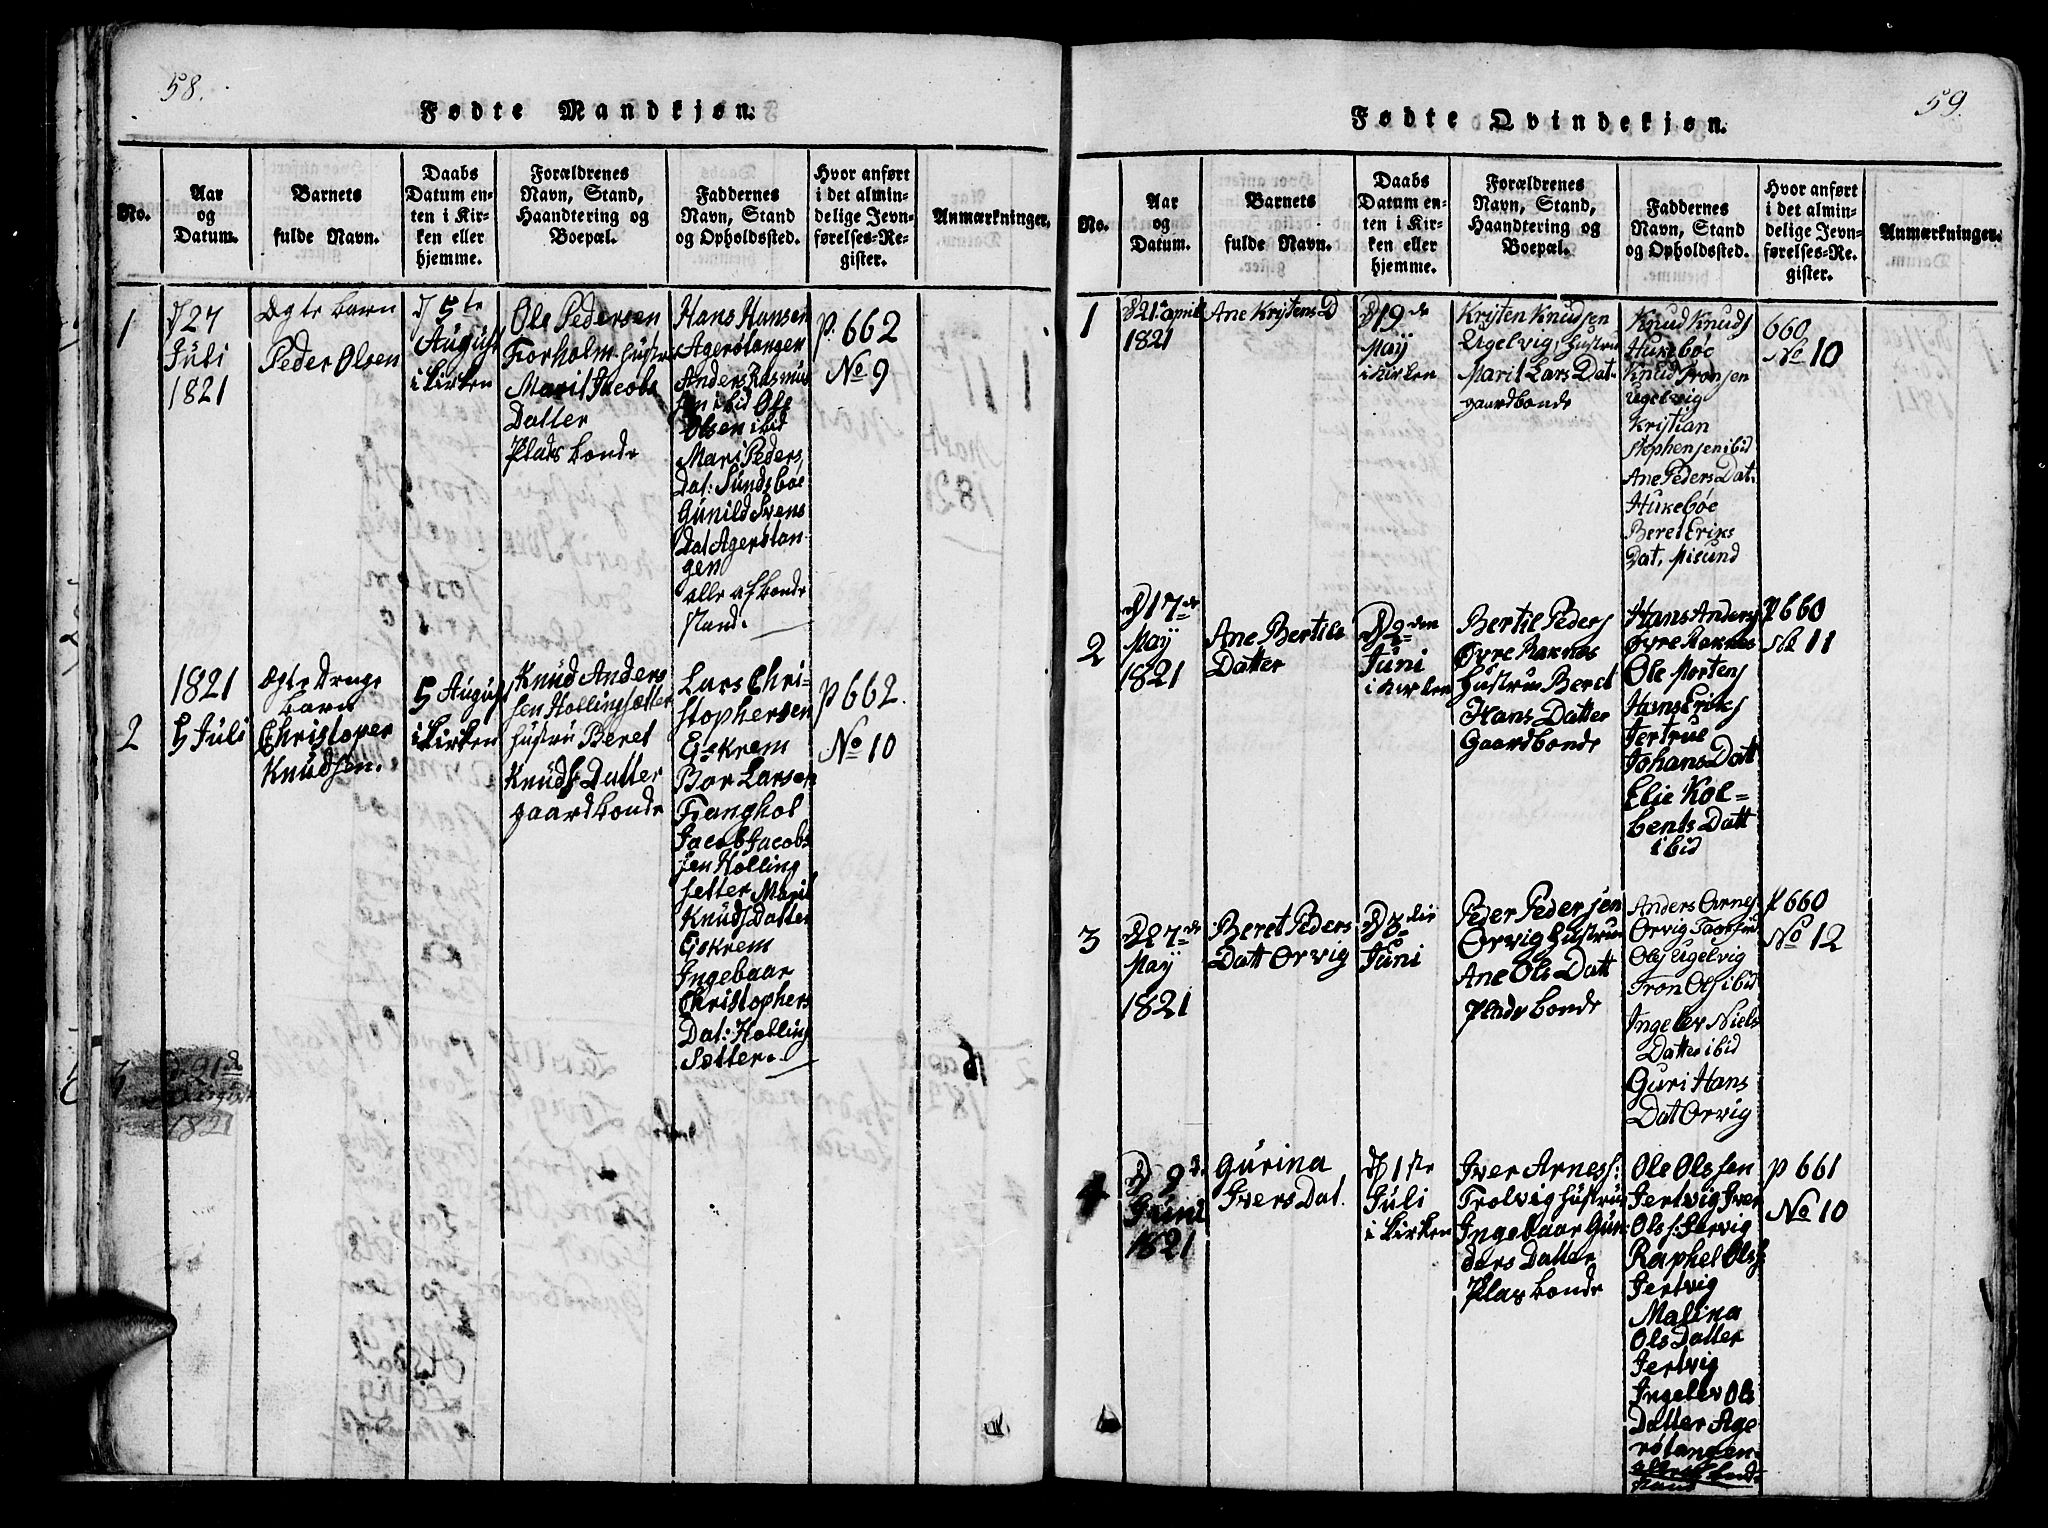 58.
Fødte Mandkjøn.
No.
Aar
og
Datum.
Barnets
fulde Navn.
Daabs
Datum en-
ten i Kir-
ken eller
hjemme.
Forældrenes
Navn, Stand,
Haandtering og
Boepæl.
Faddernes
Navn, Stand
og Opholdssted.
Hvor anført
i det almin-
delige Jevn-
førelses-Re-
gister.
Anmærkninger.
1
D 27
Juli
1821
Ægte barn
Peder Olsen
D 5te
August
i Kirken
Ole Pedersen
Forholm hustru
Marit Jacobs
Datter
Plads bonde
Hans Hansen
Agerøtangen
Anders Rasmus
sen ibid Ole
Olsen ibid
Mari Peders,
Dat: Sundsboe
Gunild Svens
Dat Agerøtan-
gen
alle af bonde
stand.
p. 662
No 9
2
1821
5 Juli
Ægte Drenge
barn
Christoper
Knudsen.
5 August
i Kirken
Knud Anders
sen Hollingsætter
hustru Beret
Knuds Datter
gaardbonde
Lars Chri-
stophersen
Eskrem
Bor Larsen
Franghol
Jacob Jacobs
sen Holling
setter Marit
Knuds Datter
Eskrem
Ingebaar
Christophers
Dat: Holling
Sætter.
p 662.
No 10
3
d. 21de
August
1821
59.
Fødte Qvindekjøn.
No.
Aar
og
Datum.
Barnets
fulde Navn.
Daabs
Datum en-
ten i Kir-
ken eller
hjemme.
Forældrenes
Navn, Stand,
Haandtering og
Boepæl.
Faddernes
Navn, Stand
og Opholdssted.
Hvor anført
i det almin-
delige Jevn-
førelses-Re-
gister.
Anmærkninger.
1
D 21 april
1821
Ane Kristens D
D 19de
May
i Kirken
Kristen Knudsen
Ugelvig, Hustru
Marit Lars Dat-
gaardbonde
Knud Knuds
Hukebøe
Knud Tronsen
Ugelvig
Kristian
Stephensen ibid
Ane Peders Dat.
Hukebøe
Beret Eriks
Dat. Misund
660
No 10
2
D 17de
May
1821
Ane Bertils
Datter
D 2den
Juni
i Kirken
Bertil Peders
Øvre Raknes
Hustru Beret
Hans Datter
Gaardbonde
Hans Anders
Øvre Raknes
Ole Mortens
Hans Eriks
Jertrue
Johans Datt
Elie Kol-
bents Datt
ibid
P 660
No 11
3
D 27de
May
1821
Beret Peders
Datt Orvig
D 3die
Juni
Peder Pedersen
Orvig Hustru
Ane Ols Datt
Plads bonde
Anders Arnes
Orvig
Ols Ugelvig
Tron Ols ibid
Ingeler Niels
Datter ibid
Guri Hans
Dat Orvig
P 660
No 12
4
D 9de
Juni
1821
Gurina
Ivers Dat.
D 1ste
Juli
i Kirken
Iver Arness:
Trolvig hustru
Ingebaar Gun-
ders Datter
Plas bonde
Ole Olssen
Jertvig Iver
Ols: Jervig
Raphel Ols
Jertvig
Malina
Ols Datter
Jertvig
Ingeler Ols
Datter Age
røtangen
alle af bond
stand
p 661
No 10